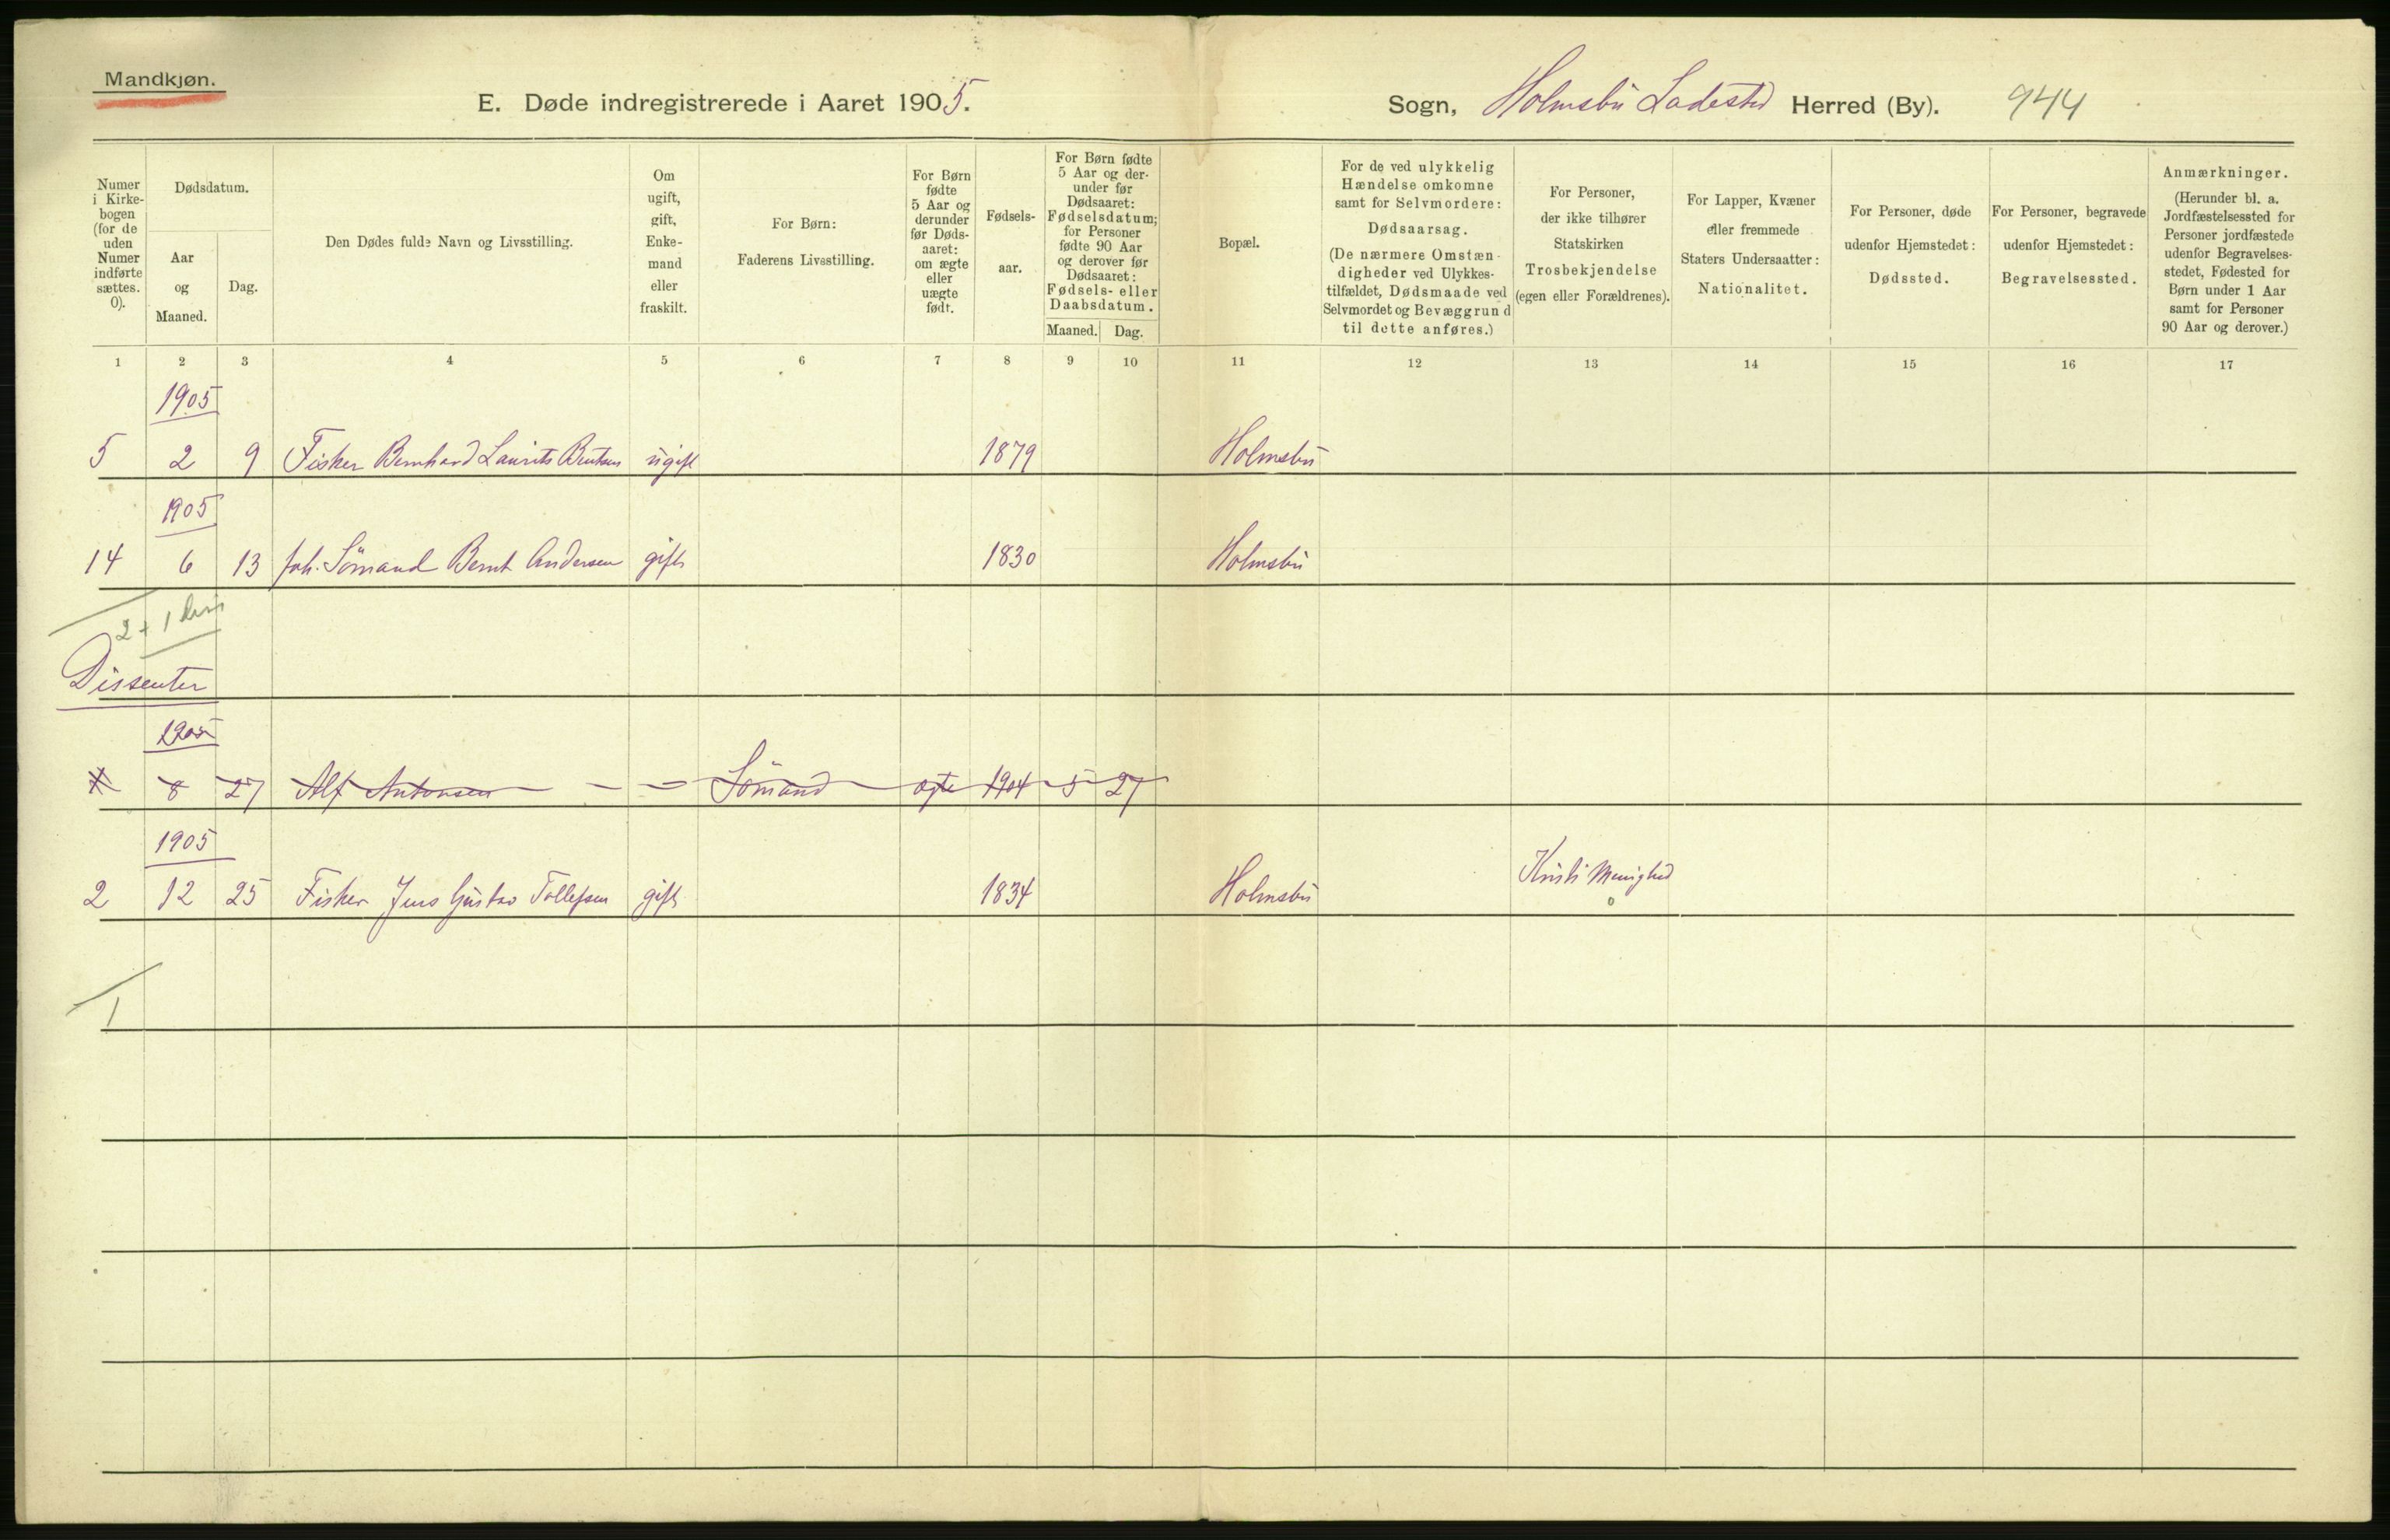 Mandkjøn.
E. Døde indregistrerede i Aaret 1905. Sogn, Holmsbu Ladested Herred (By). 944
Numer
i Kirke-
bogen
(for de
uden
Numer
indførte
sættes.
0).
Dødsdatum.
Aar
og
Maaned.
Dag.
Den Dødes fulde Navn og Livsstilling.
Om
ugift,
gift,
Enke-
mand
eller
fraskilt.
For Børn:
Faderens Livsstilling.
For Børn
fødte
5 Aar og
derunder
før Døds-
aaret:
om ægte
eller
uægte
født.
Fødsels-
aar.
For Børn fødte
5 Aar og der-
under før
Dødsaaret:
Fødselsdatum;
for Personer
fødte 90 Aar
og derover før
Dødsaaret:
Fødsels- eller
Daabsdatum.
Maaned. Dag.
Bopæl.
For de ved ulykkelig
Hændelse omkomne
samt for Selvmordere:
Dødsaarsag.
(De nærmere Omstæn-
digheder ved Ulykkes-
tilfældet, Dødsmaade ved
Selvmordet og Bevæggrund
til dette anføres.)
For Personer,
der ikke tilhører
Statskirken
Trosbekjendelse
(egen eller Forældrenes).
For Lapper, Kvæner
eller fremmede
Staters Undersaatter:
Nationalitet.
For Personer, døde
udenfor Hjemstedet:
Dødssted.
For Personer, begravede
udenfor Hjemstedet:
Begravelsessted.
Anmærkninger.
(Herunder bl. a.
Jordfæstelsessted for
Personer jordfæstede
udenfor Begravelses-
stedet, Fødested for
Børn under 1 Aar
samt for Personer
90 Aar og derover.)
1 2 3 4 5 6 7 8 9 10 11 12 13 14 15 16 17
1905
5 2 9 Fisker Bernhard Laurits Berntsen ugift 1879 Holmsbu
1905
14 6 13 foh. Sömand Bernt Andersen gift 1830 Holmsbu
2 + 1
Dissenter
1905
8 27 Alf Antonsen - - Sömand ægte 1904 5 27
1905
2 12 25 Fisker Jens Gustav Tollefsen gift 1834 Holmsbu Kristi Menighed
1